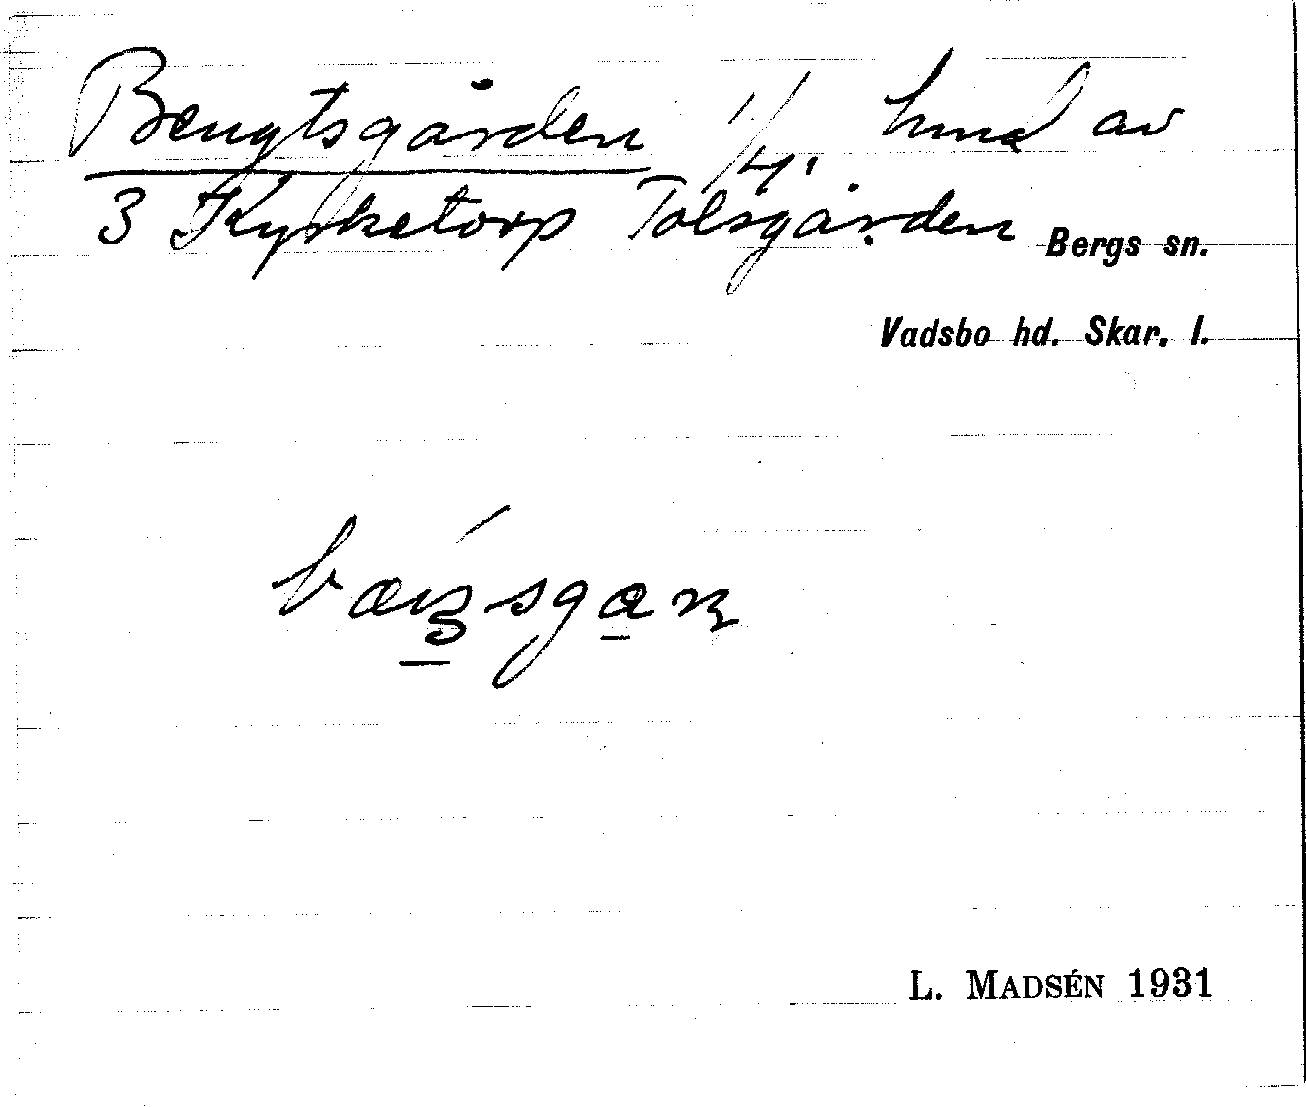 Bengtsgården 1/4. hmd av
3 Kyrketorp Tolsgården Bergs sn.
Vadsbo hd. Skar. l.
L. MADSÉN 1931